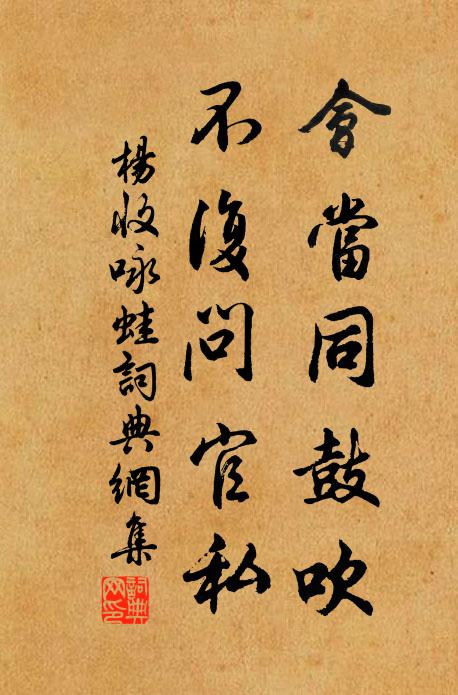 會當同鼓吹
不復問官私
楊收咏蛙詞典網集
詞典網印